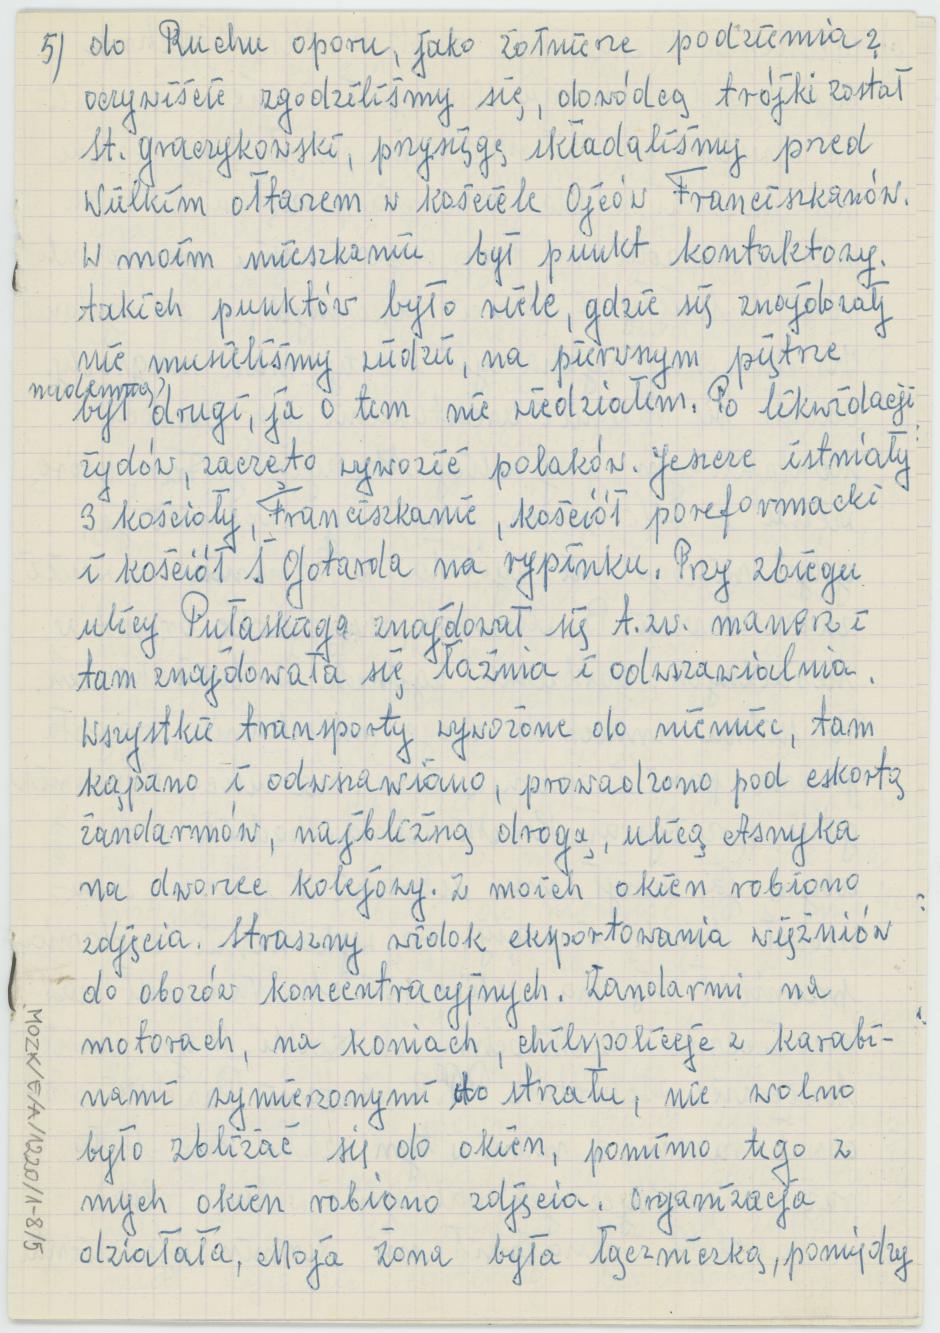 5) do Ruchu oporu, jako żołnierze podziemia?
oczywiście zgodziliśmy się, dowódcą trójki został
St. Graczykowski, przysięgę składaliśmy przed
Wielkim ołtarzem w kościele Ojców Franciszkanów.
W moim mieszkaniu był punkt kontaktowy.
takich punktów było wiele, gdzie się znajdowały
nie musieliśmy wiedzieć, na pierwszym piętrze
nademną
był drugi, ja o tem nie wiedziałem. Po likwidacji
żydów, zaczęto wywozić polaków. Jeszcze istniały
3 kościoły, Franciszkanie, kościół poreformacki
i kościół Ś Gotarda na rypinku. Przy zbiegu
ulicy Pułaskiego znajdował się t.zw. maneż i
tam znajdowała się łaźnia i odwszawialnia.
Wszystkie transporty wywożone do niemiec, tam
kąpano i odwszawiano, prowadzono pod eskortą
żandarmów, najbliżną drogą, ulicą Asnyka
na dworzec kolejowy. z moich okien robiono
zdjęcia. Straszny widok eksportowania więźniów
do obozów koncentracyjnych. Żandarmi na
motorach, na koniach, chilspolicje z karabi-
nami wymierzonymi do strzału, nie wolno
było zbliżać się do okien, pomimo tego z
mych okien robiono zdjęcia. Organizacja
działała, Moja żona była łączniczką, pomiędzy
MOZK/E/A/1220/1-8/5